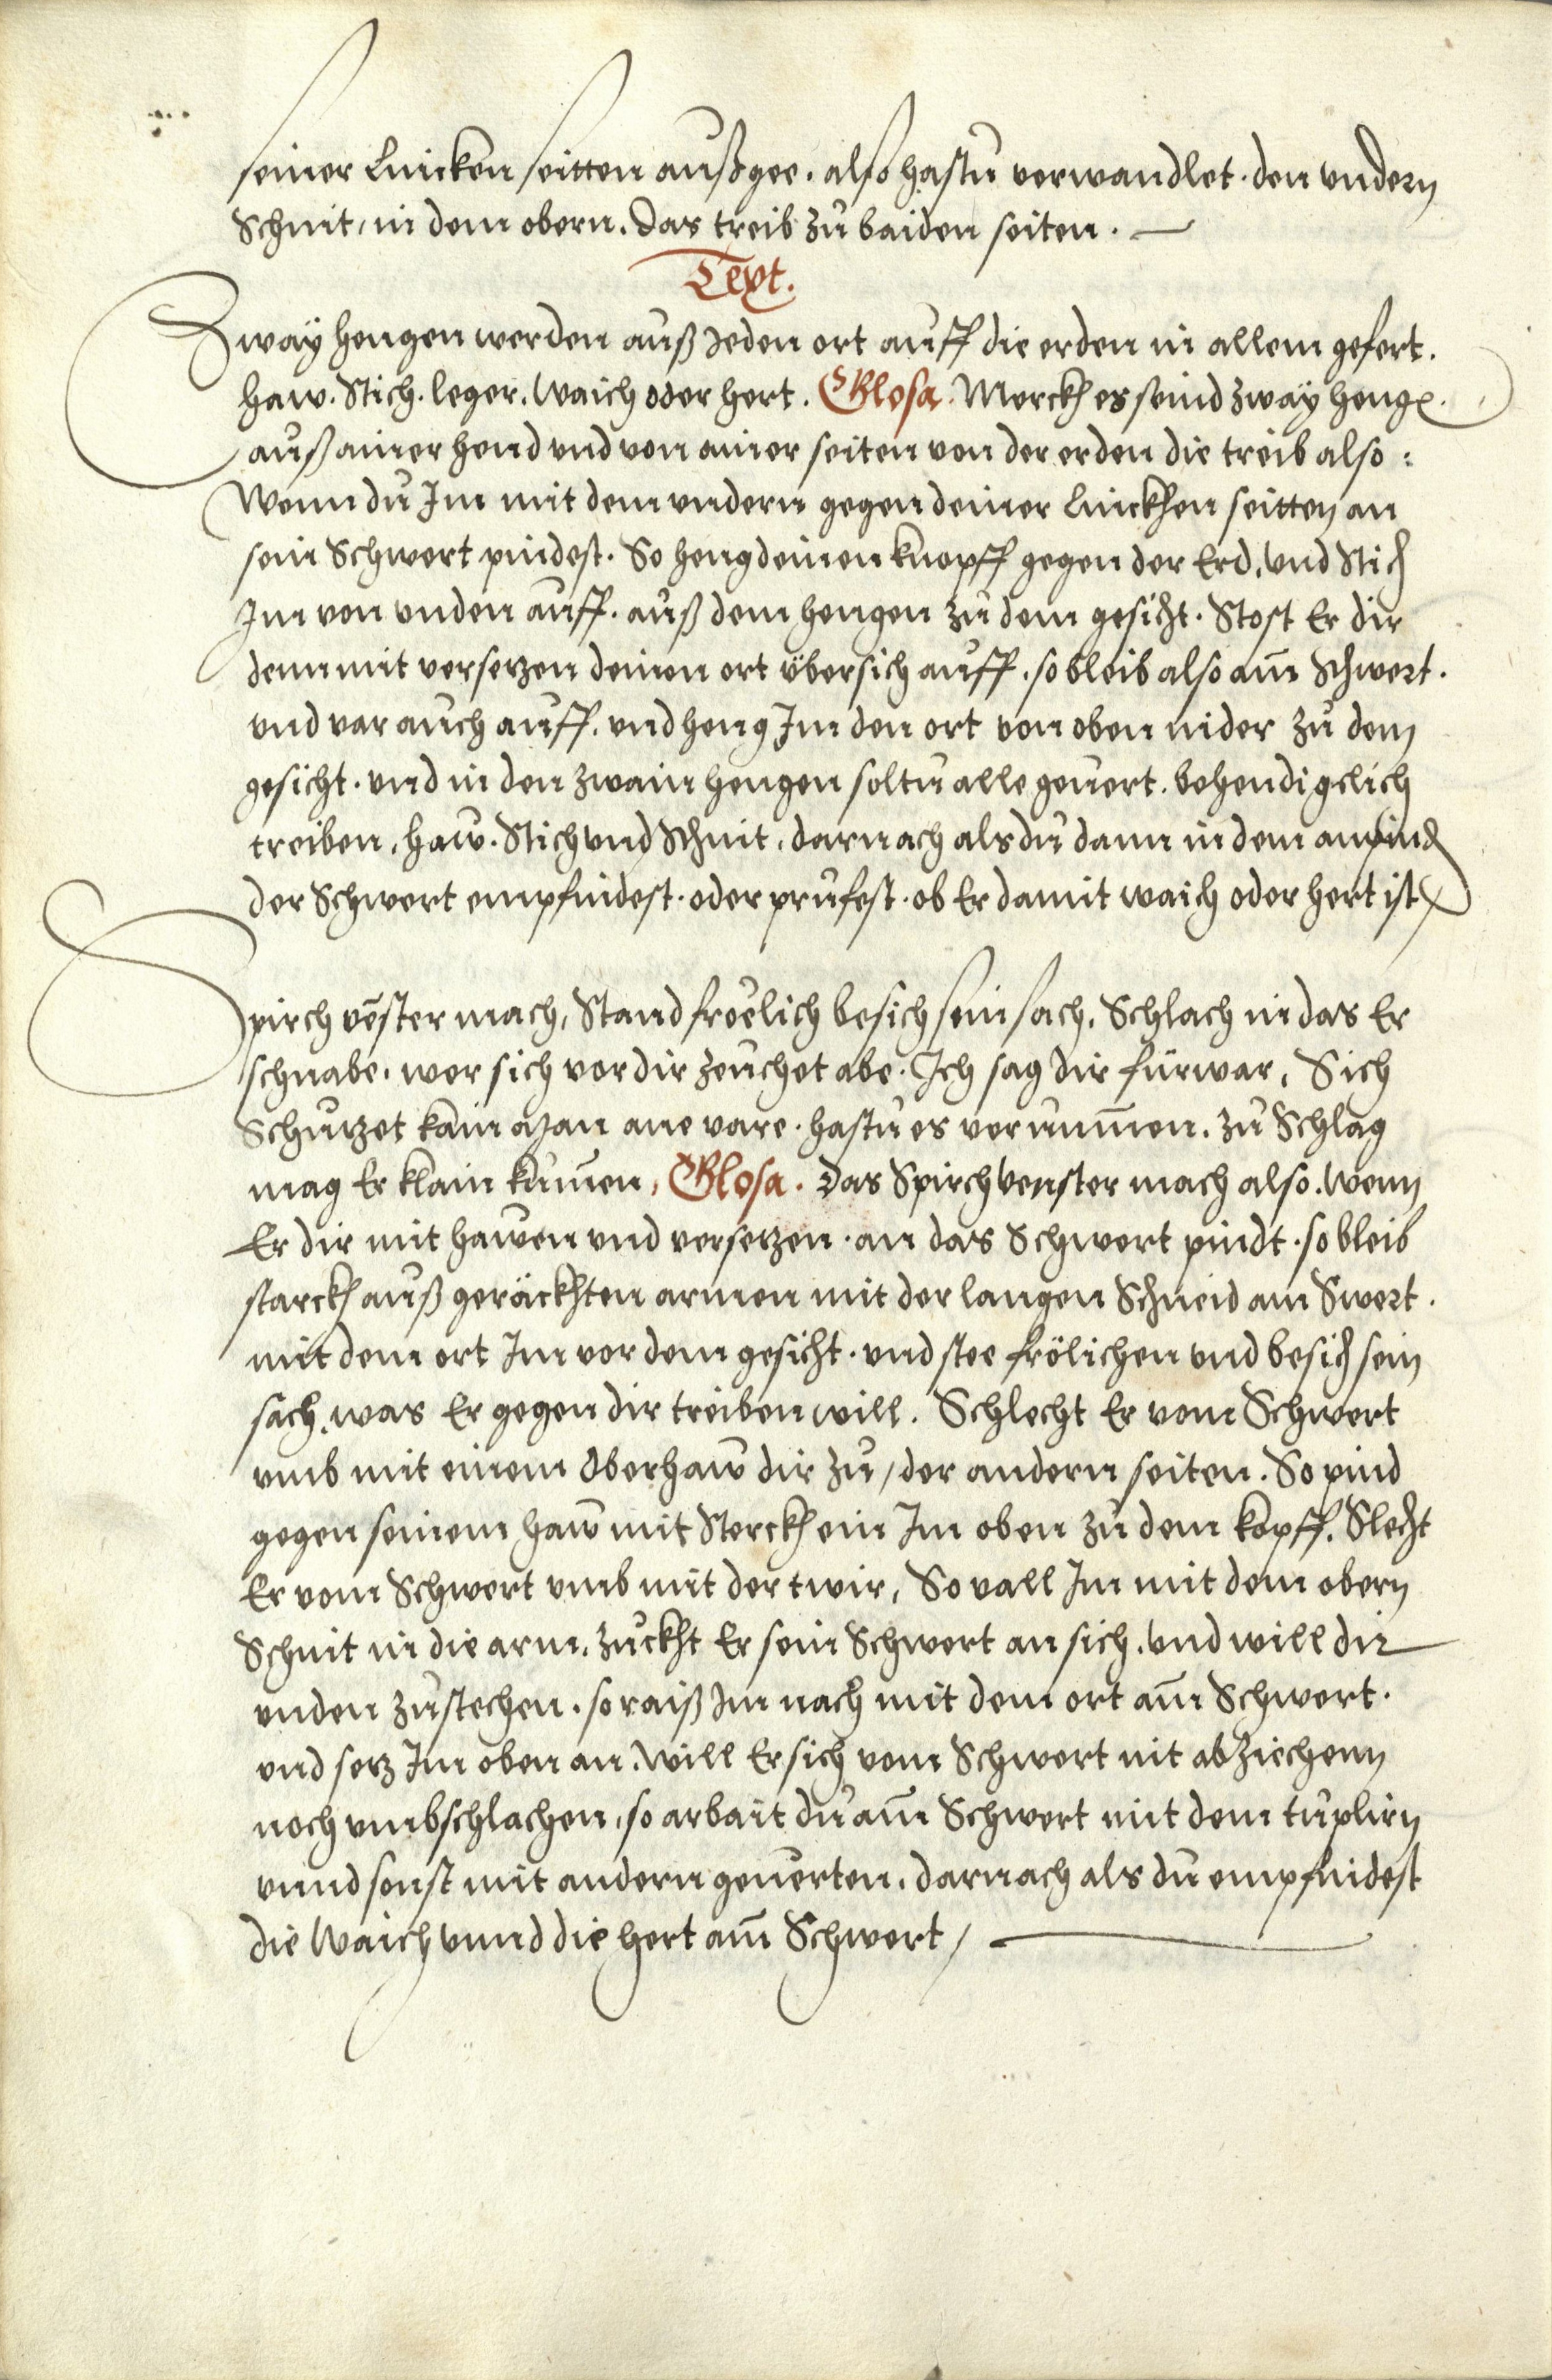 seiner Lincken seitten außgee. also hastu verwandlet. den vndern
Schnit, in dem obern. Das treib zu baiden seiten. —
Text.
Zway hengen werden auß Ieden ort auff die erden in allem gefert.
haw. Stich. leger. Waich oder hert. Glosa. Merckh es seind zway heng
auß ainer hend vnd von ainer seiten von der erden die treib also:
Wenn du Im mit dem vndern gegen deiner linckhen seitten an
sein Schwert pindest. So heng deinen knopff gegen der Erd, vnd Stich
Im von vnden auff. auß dem hengen zu dem gesicht. Stost Er dir
denn mit versetzen deinen ort übersich auff. so bleib also am̅ Schwert.
vnd var auch auff. vnd heng Im den ort von oben nider zu dem
gesicht. vnd in den zwain hengen soltu alle geuert. behendigclich
treiben, haw. Stich vnd Schnit, darnach als du dann in dem anpind
der Schwert empfindest. oder prufest. ob Er damit waich oder hert ist/
Spirch vēster mach, Stand froelich besich sein sach, Schlach in das Er
schnabe. wer sich vor dir zeuchet abe. Ich sag dir fürwar, Sich
Schutzet kain man ane vare. hastu es vernum̅en. zu Schlag
mag Er klain kum̅en, Glosa. Das Spirch venster mach also. wenn
Er dir mit hawen vnd versetzen. an das Schwert pindt. so bleib
starckh auß geräckhten armen mit der langen Schneid am Swert.
mit dem ort Im vor dem gesicht. vnd stee frölichen vnd besich sein
sach. was Er gegen dir treiben will. Schlecht Er vom Schwert
vmb mit einem Oberhaw dir zu, der andern seiten. So pind
gegen seinem haw mit Sterckh ein Im oben zu dem kopff. Slecht
Er vom Schwert vmb mit der twir, So vall Im mit dem obern
Schnit in die arm. zuckht Er sein Schwert an sich. vnd will dir
vnden zustechen. so raiß Im nach mit dem ort am̅ Schwert.
vnd setz Im oben an. Will Er sich vom Schwert nit abziechenn
noch vmbschlachen, so arbait du am̅ Schwert mit dem tuplirn
vnnd sonst mit andern geuerten. darnach als du empfindest
die Waich vnnd die hert am̅ Schwert / —